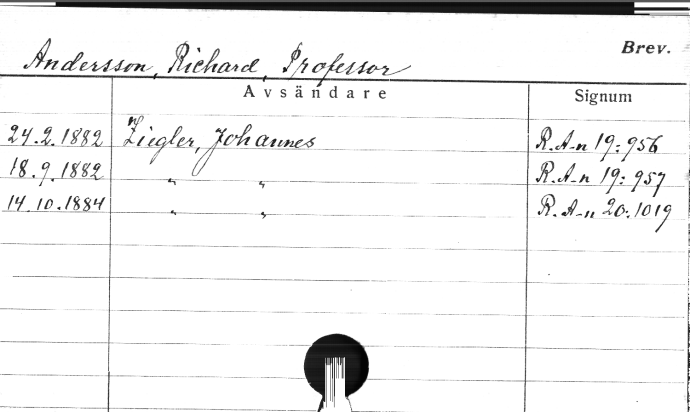 Brev.
Andersson, Richard, Professor
Avsändare Signum
24.2.1882 Ziegler, Johannes R.A-n 19:956
18.9.1882 " " R.A-n 19:957
14.10.1884 " " R.A-n 20:1019